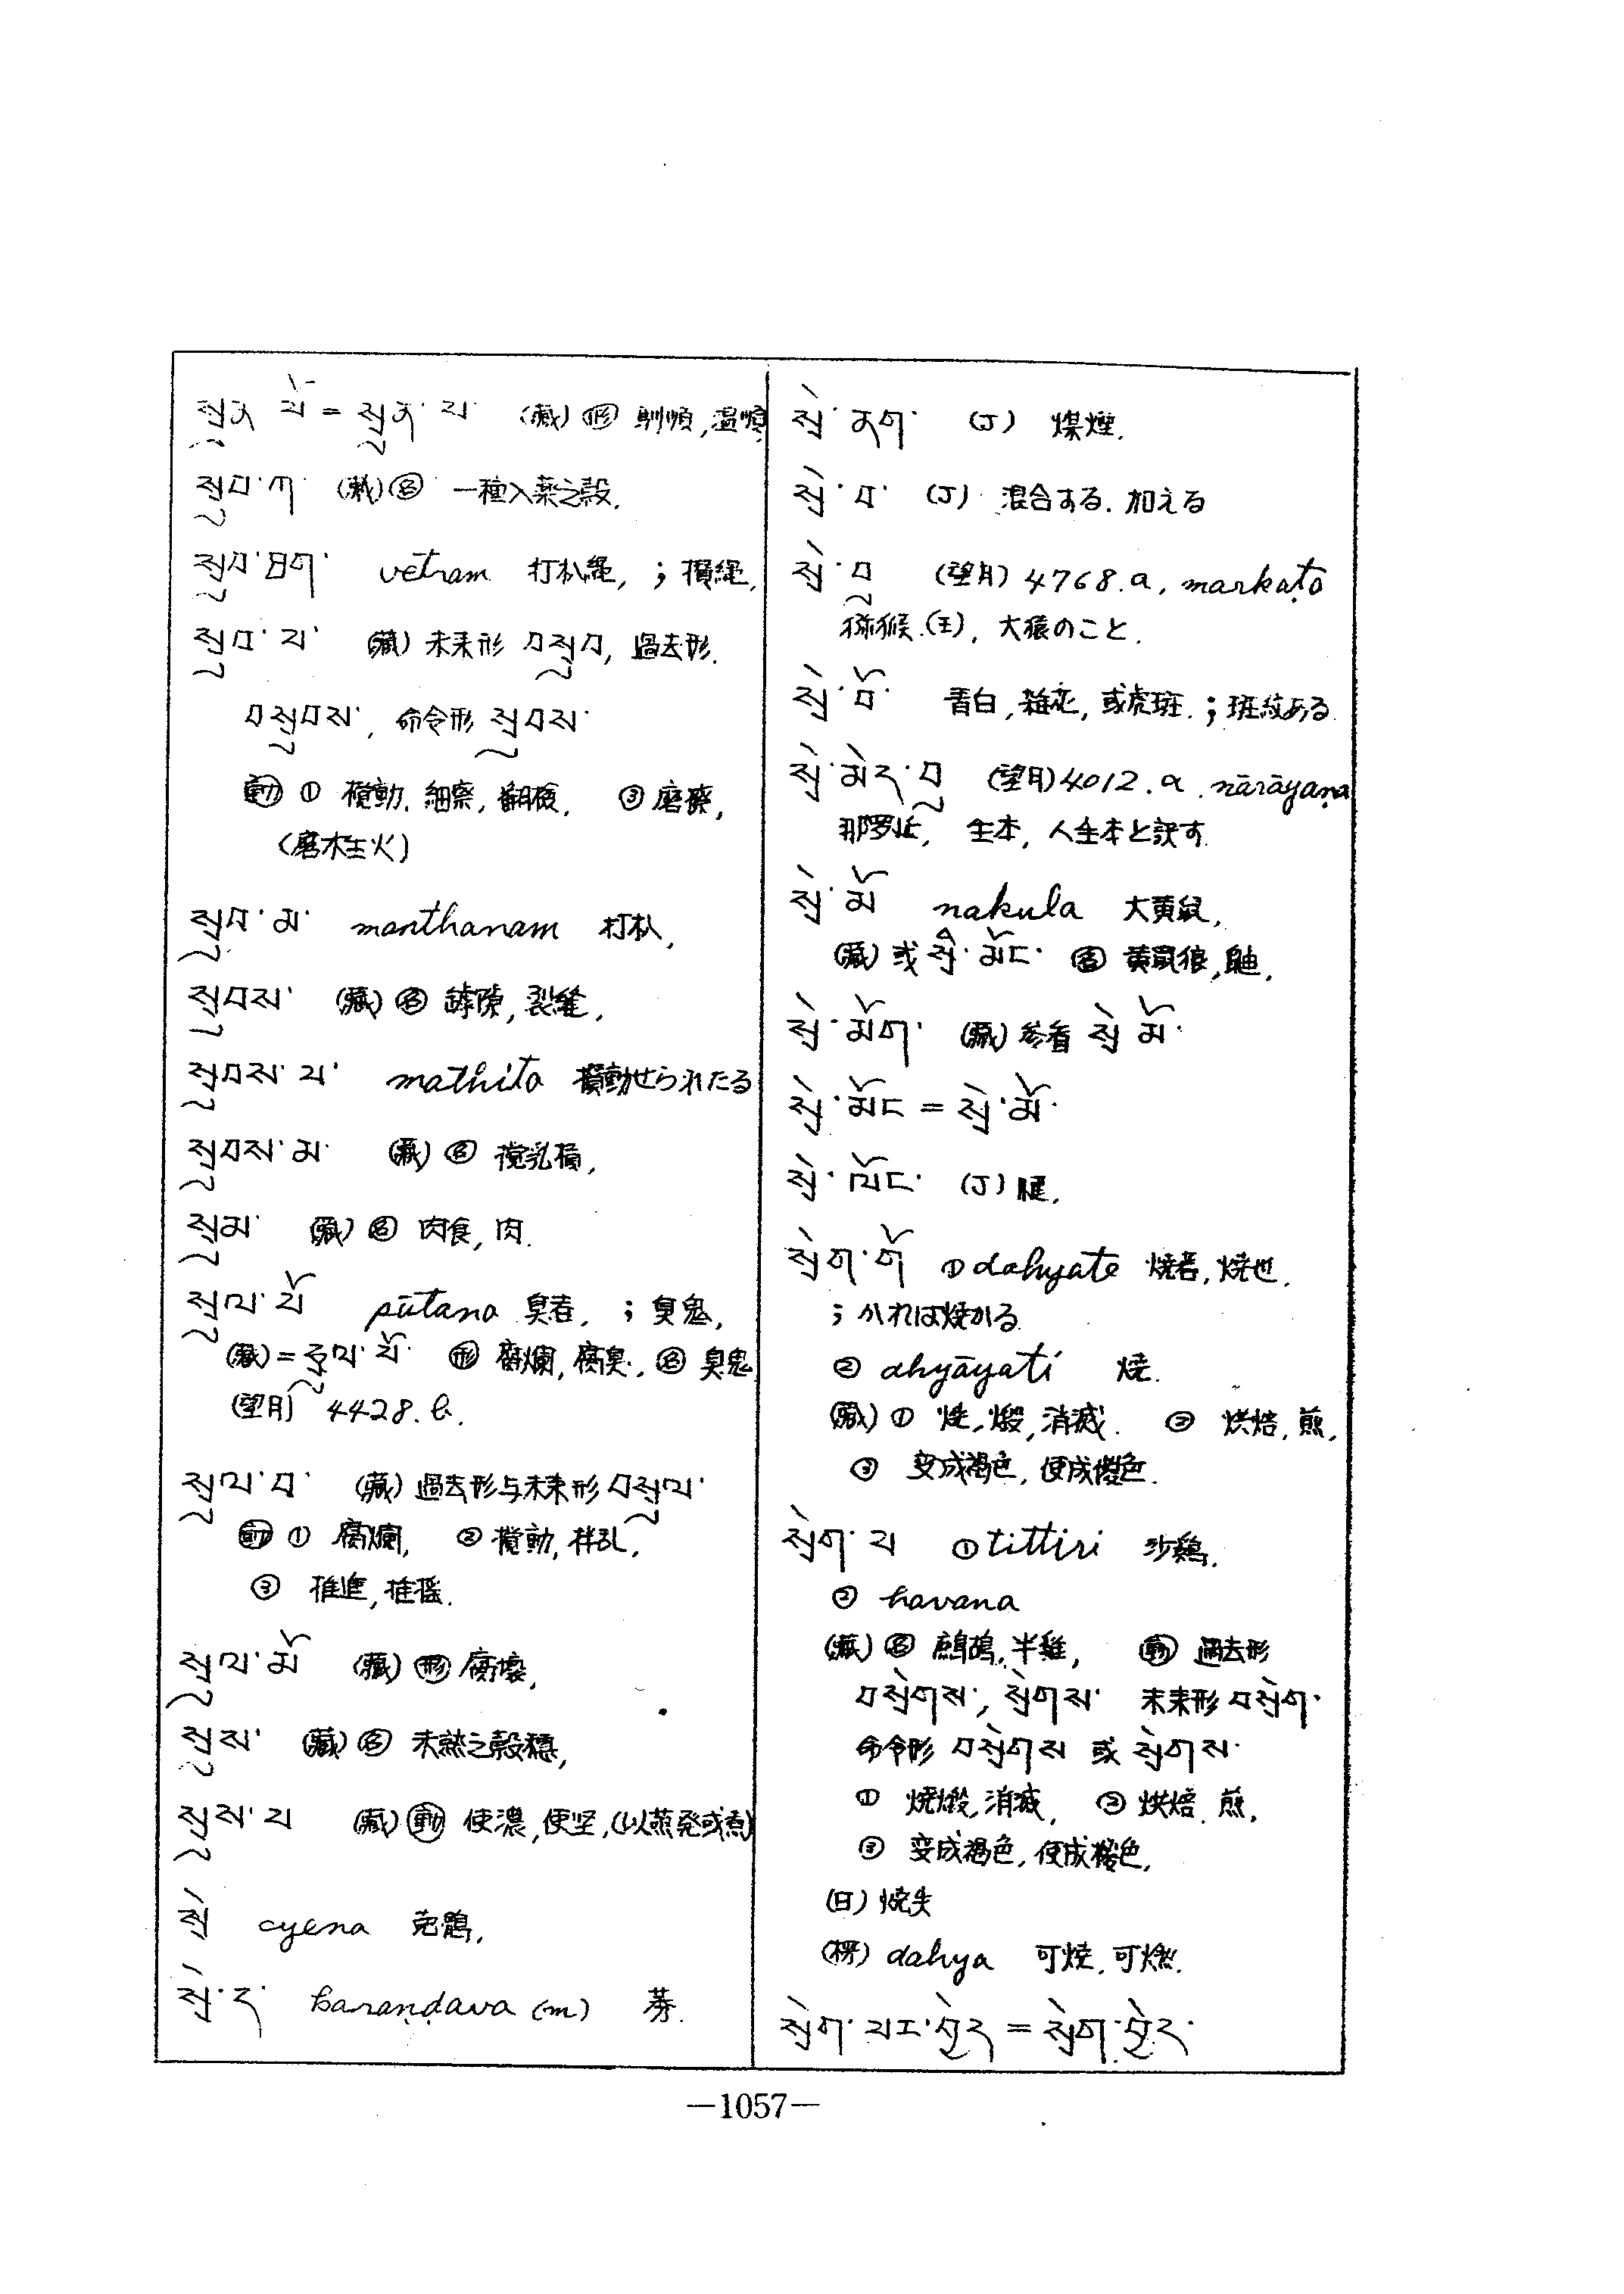 སྲུན་པོ = སྲུན་པ་ (蔵) 形 馴順, 温順
སྲུབ་ཀ་ (蔵) 名 一種入薬之殻.
སྲུབ་ཐག་ vetram 打杁縄, ; 攅縄,
སྲུབ་པ་ (蔵) 未来形 བསྲུབ, 過去形.
བསྲུབས་, 命令形 སྲུབས་
動 ① 攪動, 細察, 翻検, ③ 磨擦,
(磨木生火)
སྲུབ་མ་ manthanam 打杁,
སྲུབས་ (蔵) 名 罅隙, 裂縫,
སྲུབས་པ་ mathita 攅動せられたる
སྲུབས་མ་ (蔵) 名 攪乳槓,
སྲུམ་ (蔵) 名 肉食, 肉.
སྲུལ་པོ pūtana 臭者, ; 臭鬼,
(蔵) = རུལ་པོ་ 形 腐爛, 腐臭, 名 臭鬼
(望月) 4428.b.
སྲུལ་བ་ (蔵) 過去形与未来形 བསྲུལ་
動 ① 腐爛, ② 攪動, 拌乱,
③ 推進, 推搖.
སྲུལ་མོ (蔵) 形 腐壞,
སྲུས་ (蔵) 名 未熟之穀穂,
སྲུས་པ (蔵) 動 使濃, 使坚, (以蒸発或煮)
སྲེ cyena
སྲེ་ད་ karaṇḍava (m) 莠.
སྲེ་ནག་ (J) 煤煙.
སྲེ་བ་ (J) 混合する. 加える
སྲེ་བུ (望月) 4768.a, markaṭo
猕猴 (王), 大猿のこと.
སྲེ་བོ་ 青白, 雑花, 或虎斑. ; 斑紋ある
སྲེ་མེད་བུ (望月) 4012.a. nārāyaṇa
那罗延, 生本, 人生本と訳す.
སྲེ་མོ nakula 大黄鼠,
(蔵) 或 སྲེ་མོང་ 名 黄鼠狼, 鼬,
སྲེ་མོག་ (蔵) 参看 སྲེ་མོ་
སྲེ་མོང = སྲེ་མོ་
སྲེ་ལོང་ (J) 腿,
སྲེག་གོ ① dahyate 焼者, 焼也,
; かれは焼かる
② dhyāyati 焼.
(蔵) ① 焼, 燬, 消滅. ② 烘焙, 煎,
③ 変成褐色, 使成褐色.
སྲེག་པ ① tittiri 沙鷄,
② havana
(蔵) 名 鷓鴣, 半雞, 動 過去形
བསྲེགས་, སྲེགས་ 未来形 བསྲེག་
命令形 བསྲེགས 或 སྲེགས་
① 焼燬, 消滅, ② 烘焙, 煎,
③ 変成褐色, 使成褐色,
(日) 焼失
(楞) dahya 可焼, 可燃.
སྲེག་པར་བྱེད = སྲེག་བྱེད་
—1057—